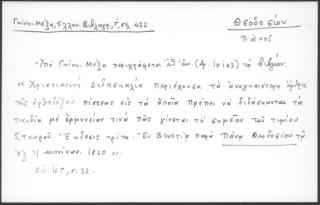 Γκίνη-Μέξα, Ἑλλην. Βιβλιογρ., Γ, σελ. 432
Θεοδοσίου
Πάνος
-Ὑπὸ Γκίνη-Μέξα περιγράφεται (ἀρ. 10141) τὸ βιβλίον:
« Χριστιανικὴ Διδασκαλία περιέχουσα τὰ ἀναγκαιότερα ἄρθρα
τῆς ὀρθοδόξου πίστεως εἰς τὰ ὁποῖα πρέπει νὰ διδάσκωνται τὰ
παιδία μὲ ἑρμηνείαν τινὰ πῶς γίνεται τὸ σημεῖον τοῦ τιμίου
Σταυροῦ. Ἔκδοσις τρίτη. Ἐν Βενετίᾳ παρὰ Πάνῳ Θεοδοσίου τῷ
ἐξ Ἰωαννίνων. 1820 ».
Εἰς 16°, σ. 32.